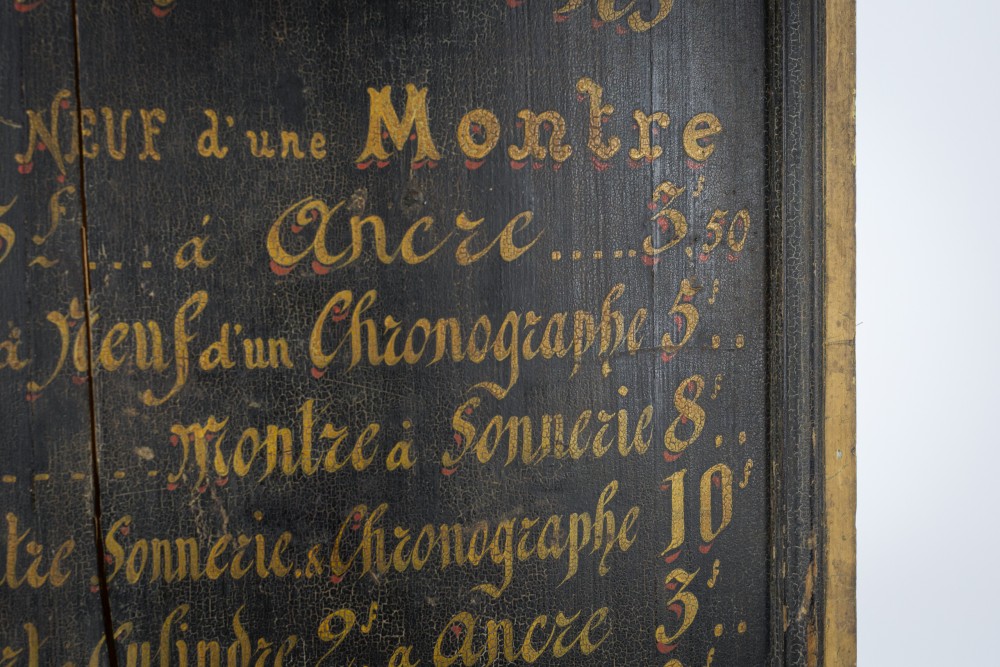 Neuf d'une Montre
5 f .... à Ancre .....3 f,50
à Neuf d'un Chronographe 5 f ..
....... Montre à Sonnerie 8 f ..
Sonnerie & Chronographe 10 f
Cylindre 2 f à Ancre 3 f ..